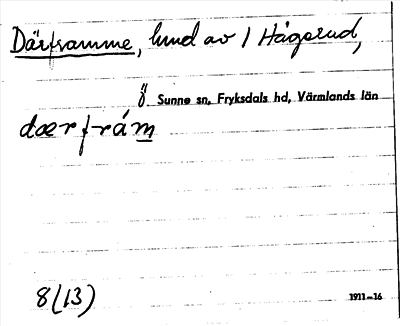 Därframme, lund av 1 Hågsrud,
Ö Sunne sn, Fryksdals hd, Värmlands län
dærfrám
8(13)
1911–16